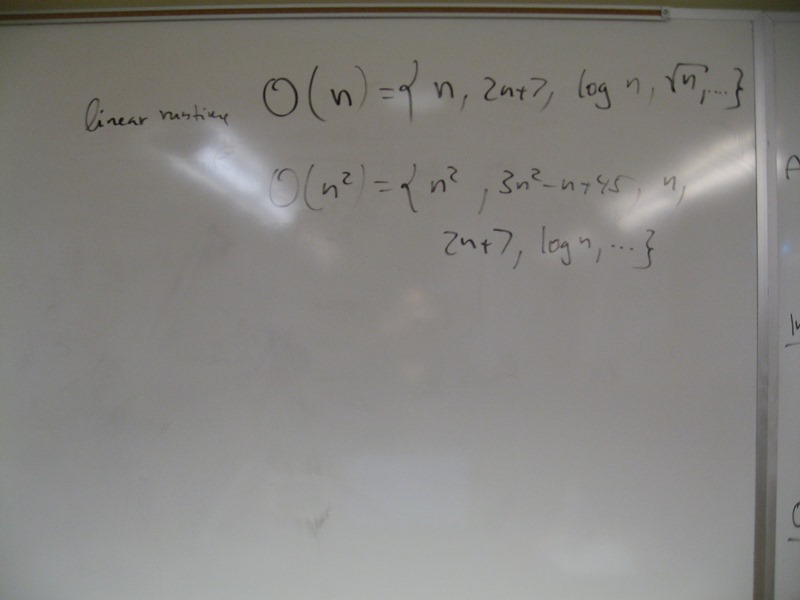 linear runtime O(n) = { n, 2n+7, log n, √n, ... }
O(n²) = { n², 3n²-n+45, n,
2n+7, log n, ... }